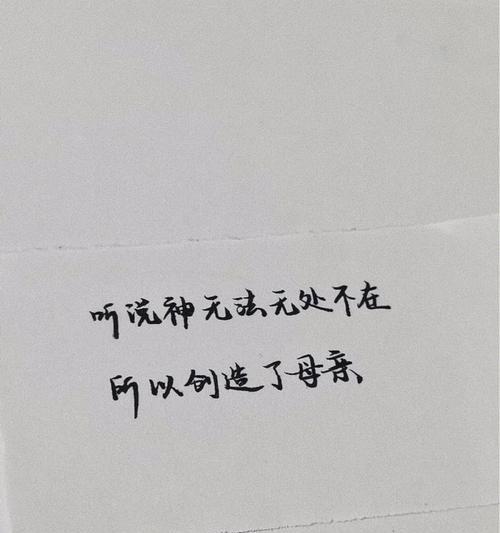 听说神无法无处不在
所以创造了母亲